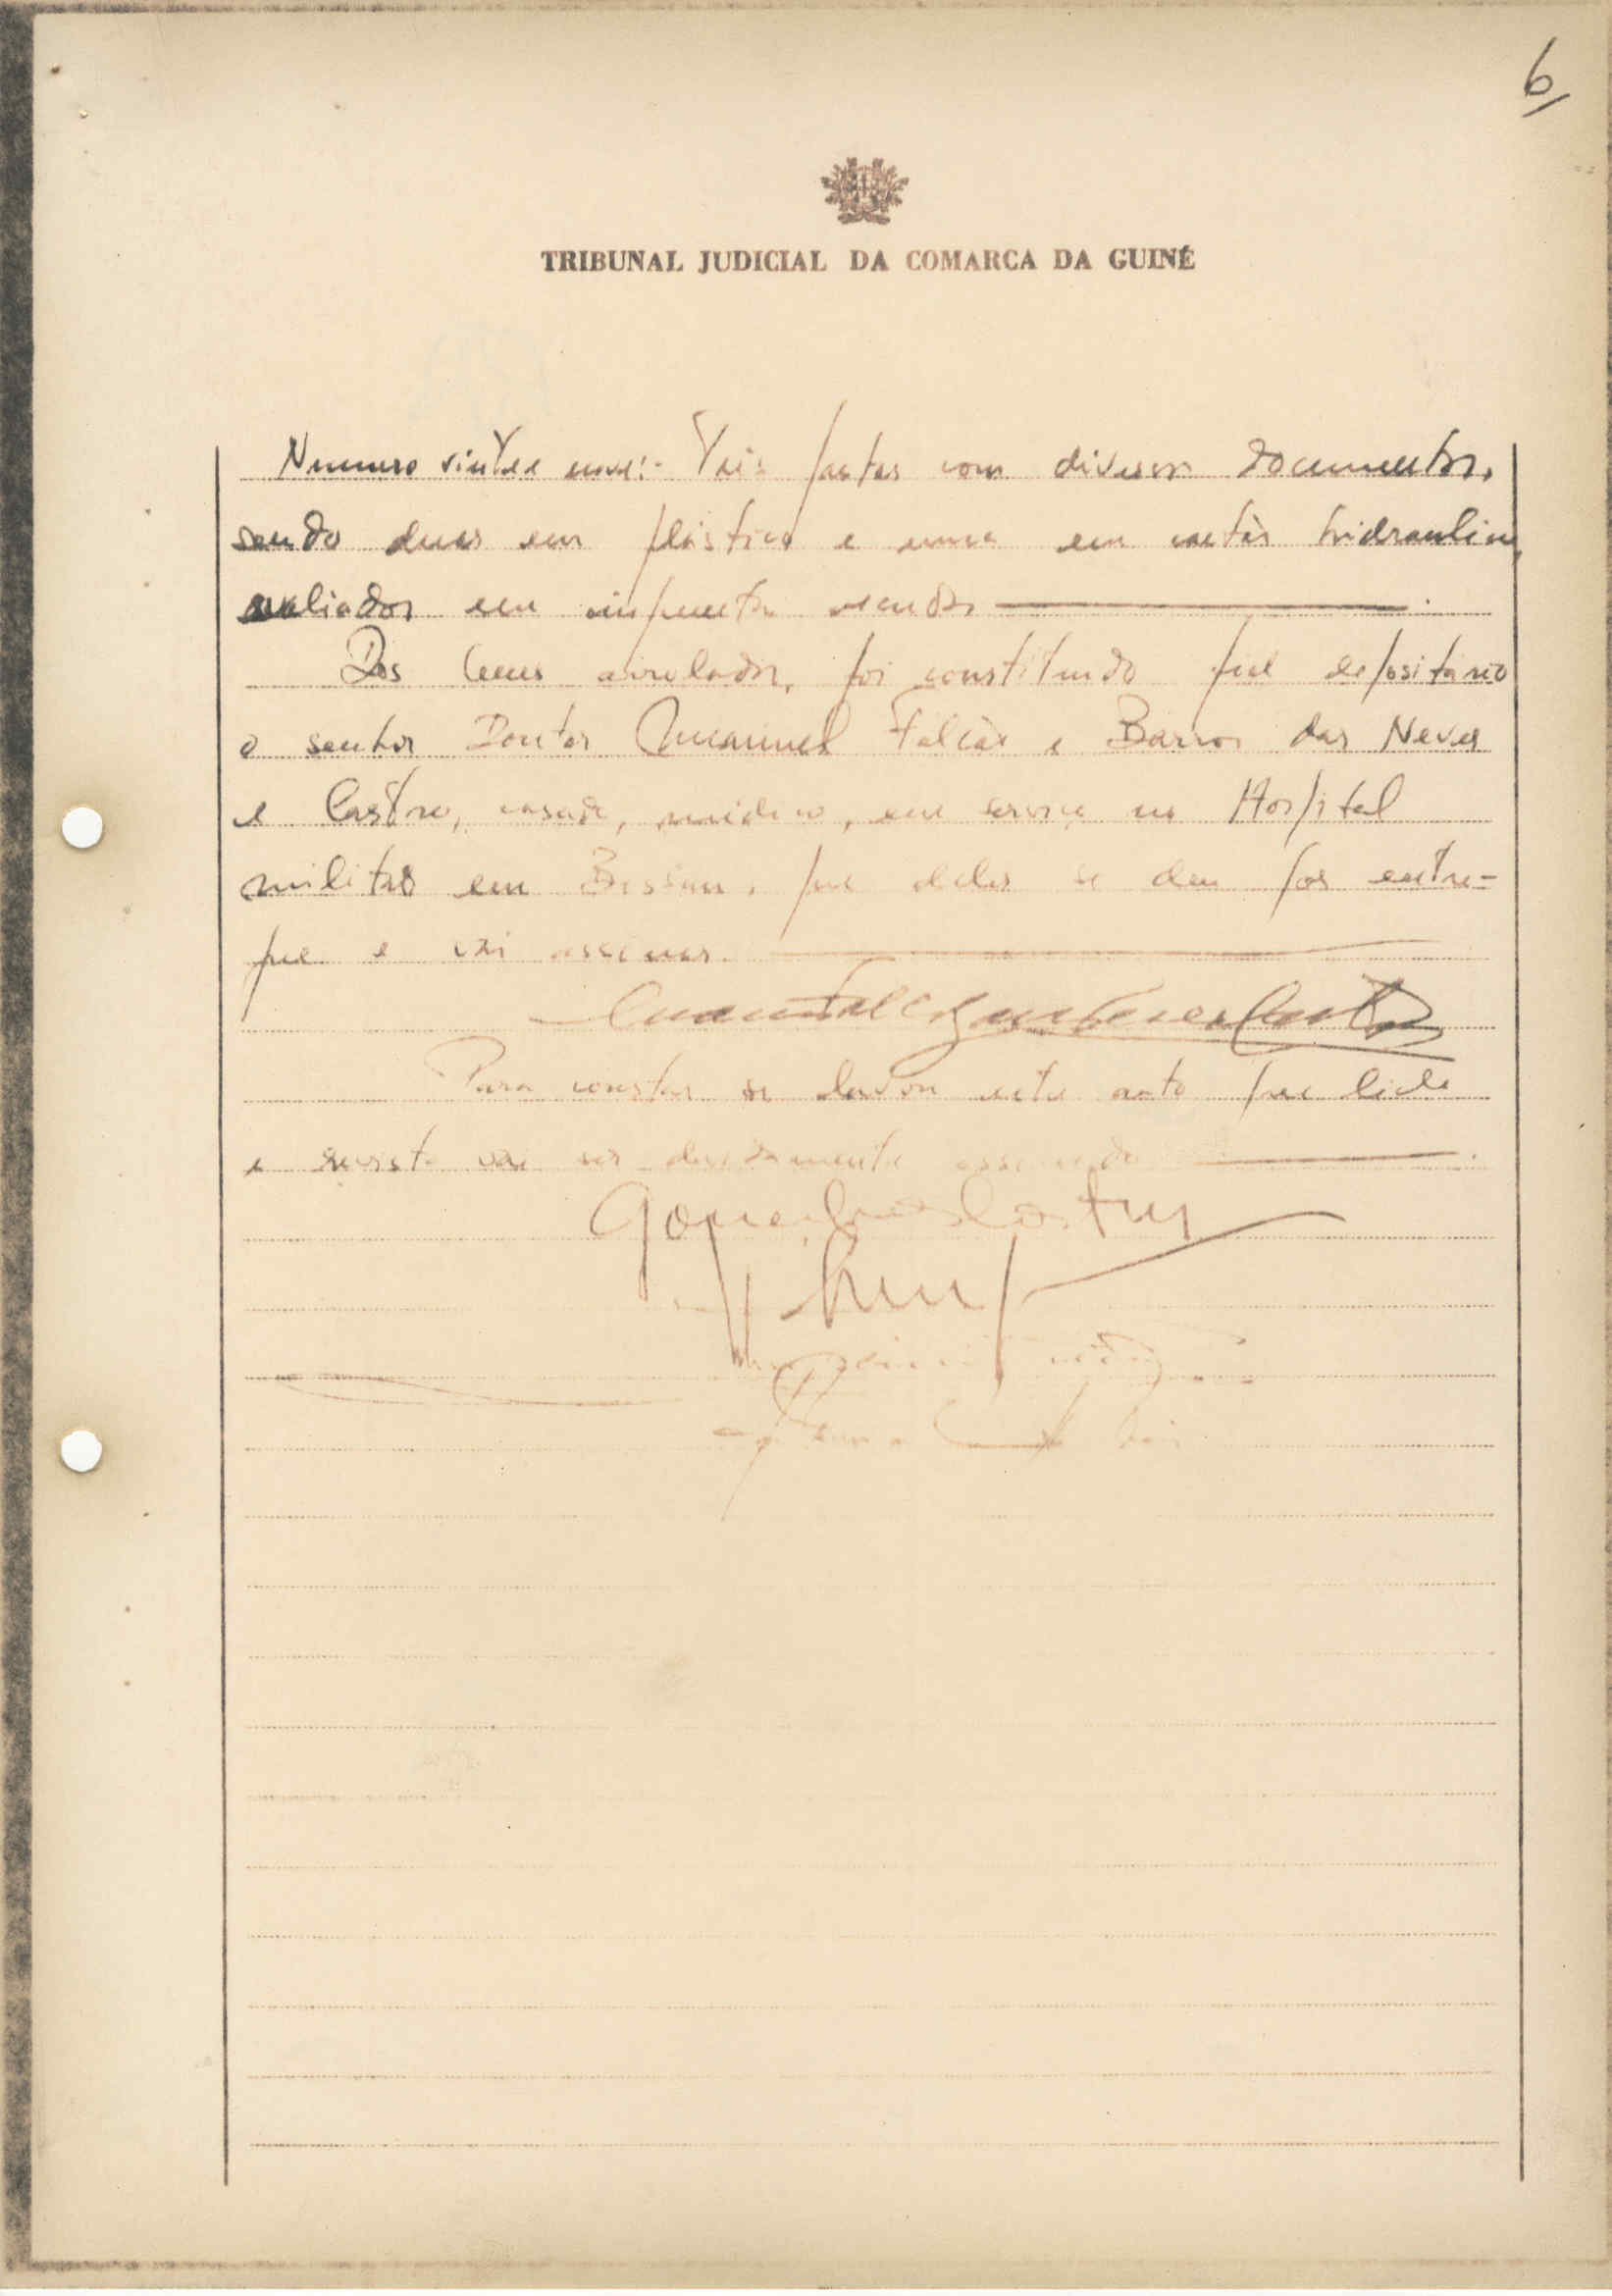 6
TRIBUNAL JUDICIAL DA COMARCA DA GUINÉ
Numero vinte e nove:- Três pastas com diversos documentos,
sendo duas em plástico e uma em cartão
avaliados em cinquenta escudos.
Dos bens arrolados, foi constituido fiel depositário
o senhor Doutor Manuel Falcão e Barros das Neves
e Castro, casado, médico, em serviço no Hospital
militar em Bissau, que deles se deu por entre-
gue e vai assinar.
Para constar se lavrou este auto que lido
e revisto vai ser devidamente assinado.